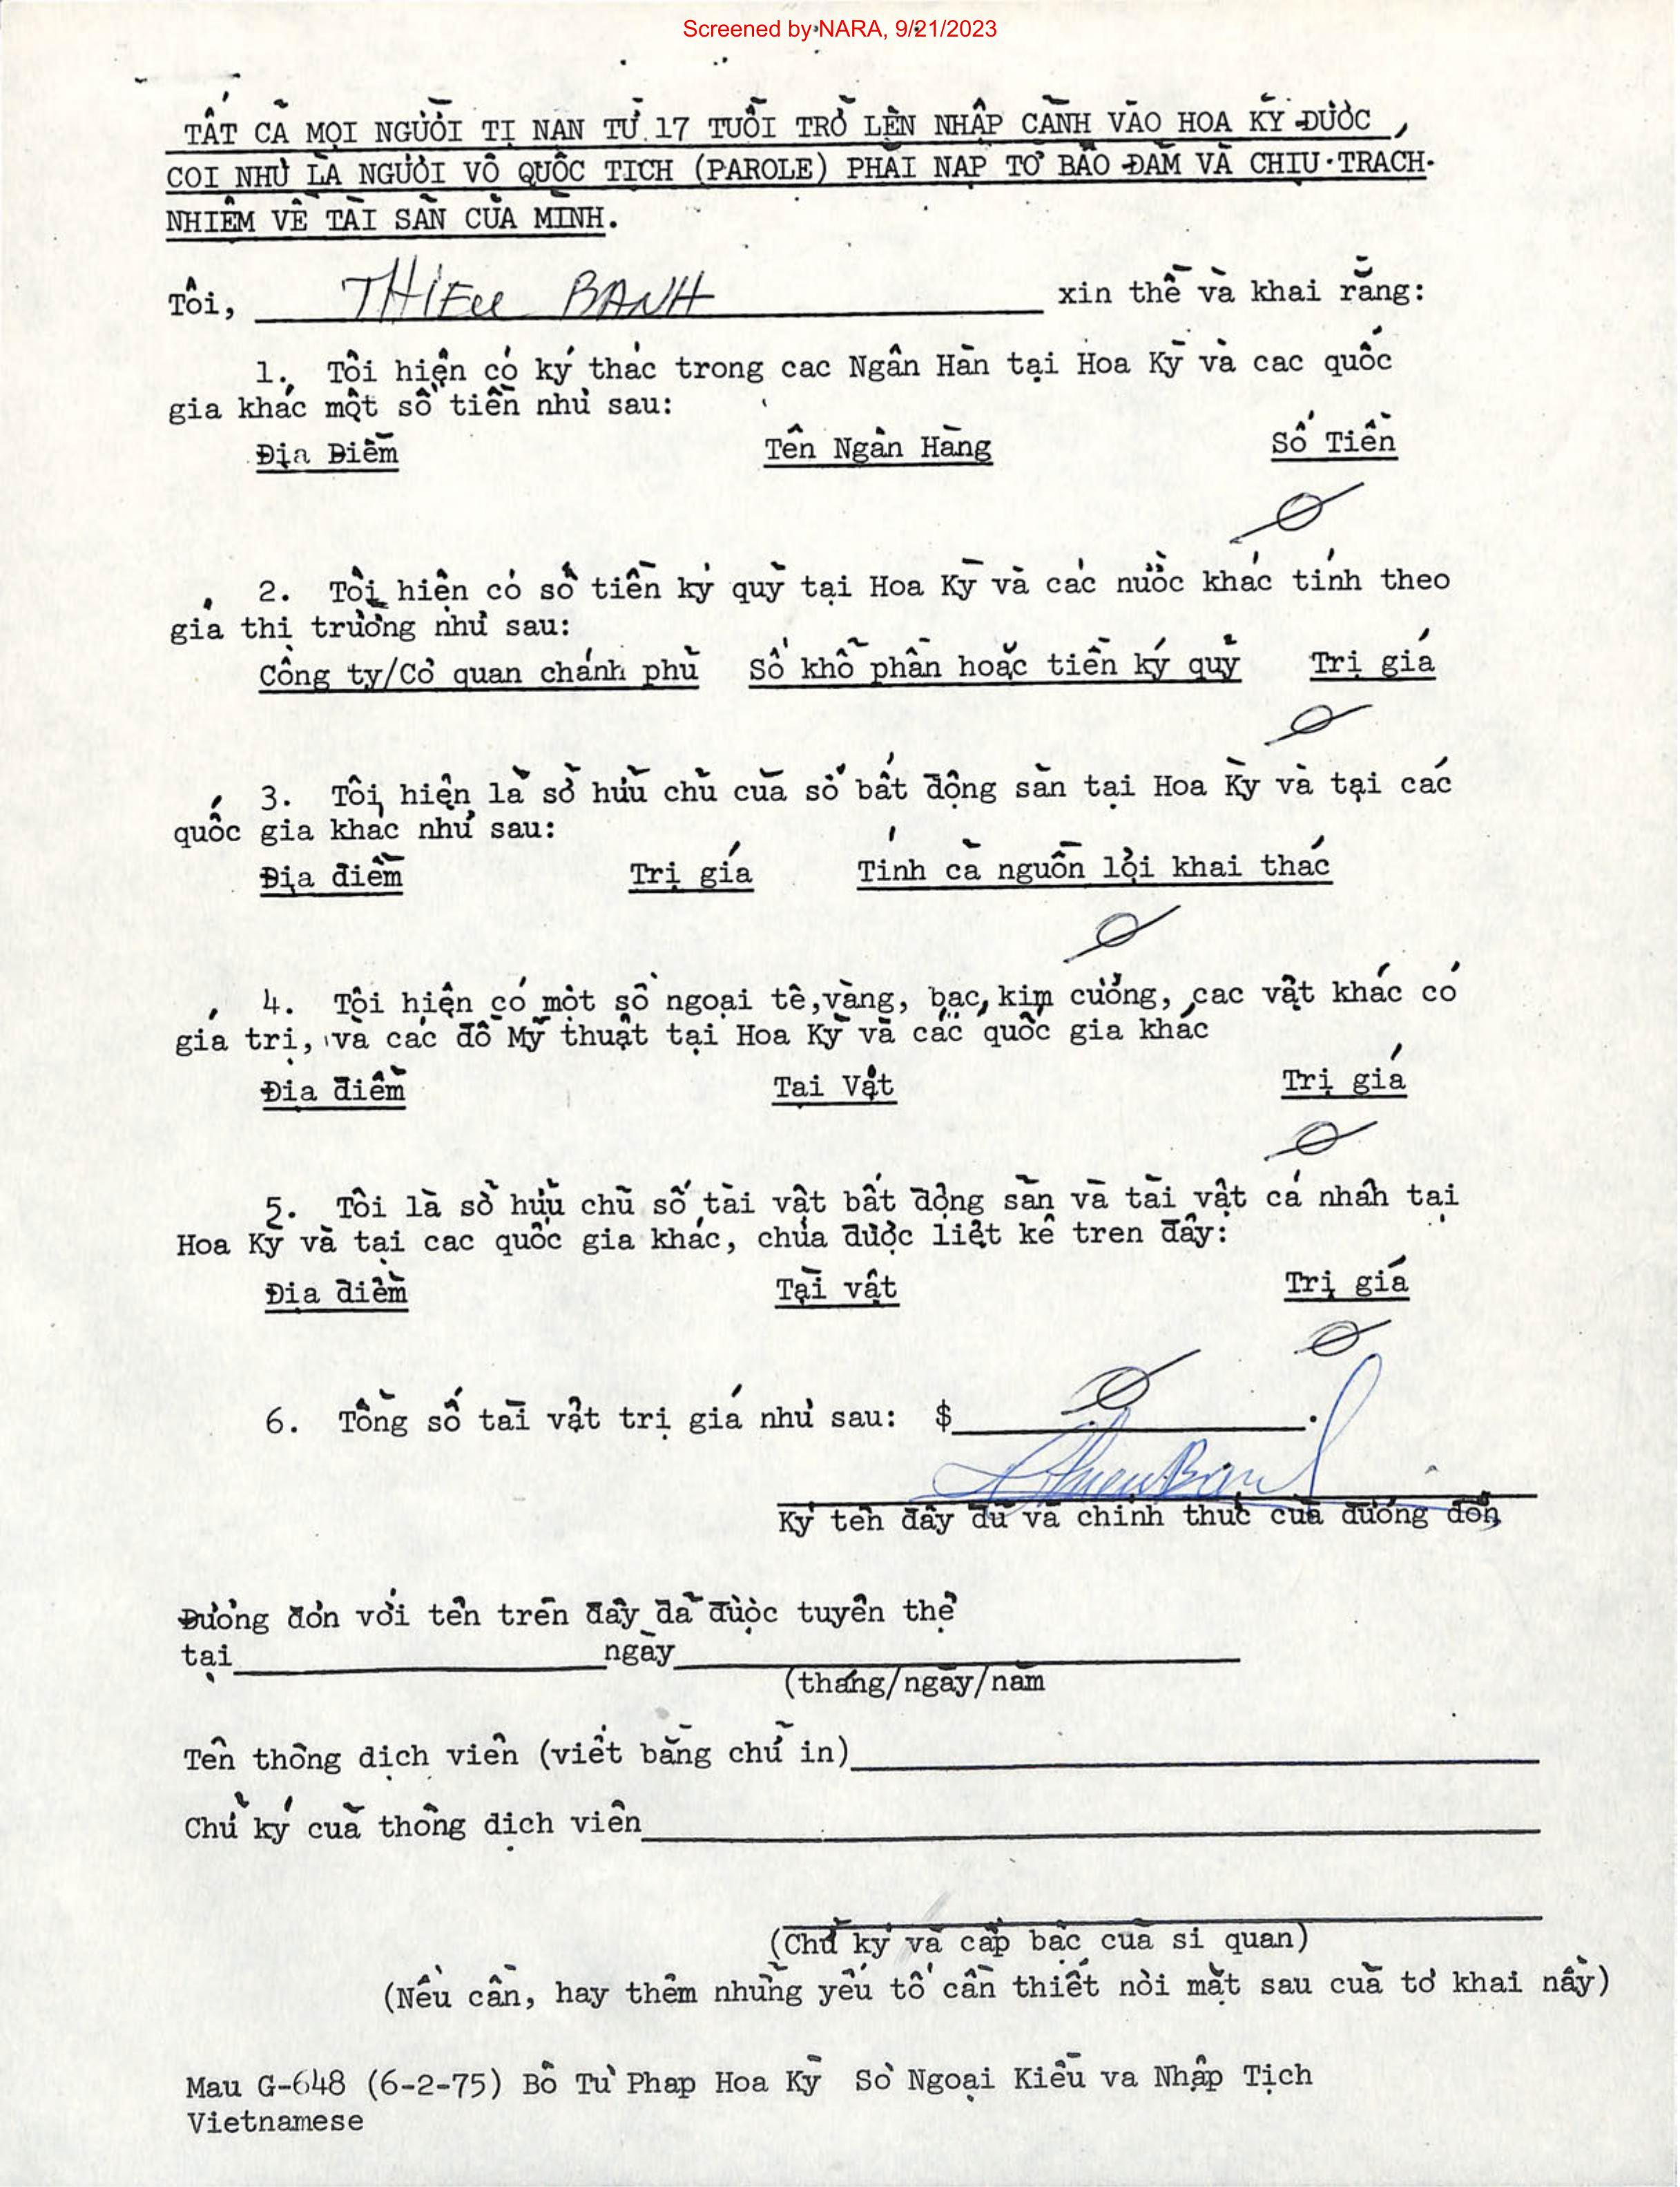 Screened by NARA, 9/21/2023
TẤT CẢ MỌI NGƯỜI TỊ NẠN TỪ 17 TUỔI TRỞ LÊN NHẬP CẢNH VÀO HOA KỲ ĐƯỢC,
COI NHƯ LÀ NGƯỜI VÔ QUỐC TỊCH (PAROLE) PHẢI NẠP TỜ BẢO ĐẢM VÀ CHỊU TRÁCH
NHIỆM VỀ TÀI SẢN CỦA MÌNH.
Tôi, THIEU BANH xin thề và khai rằng:
1. Tôi hiện có ký thác trong cac Ngân Hàn tại Hoa Kỳ và cac quốc
gia khác một số tiền như sau:
Địa Điểm Tên Ngân Hàng Số Tiền
Ø
2. Tôi hiện có số tiền ký quỹ tại Hoa Kỳ và các nước khác tính theo
giá thi trường như sau:
Công ty/Cơ quan chánh phủ Số khổ phần hoặc tiền ký quỹ Trị giá
Ø
3. Tôi hiện là sở hữu chủ của số bất động sản tại Hoa Kỳ và tại các
quốc gia khác như sau:
Địa điểm Trị giá Tính cả nguồn lợi khai thác
Ø
4. Tôi hiện có một số ngoại tê,vàng, bạc, kim cương, cac vật khác có
giá trị, và các đồ Mỹ thuật tại Hoa Kỳ và các quốc gia khác
Địa điểm Tai Vật Trị giá
Ø
5. Tôi là sở hữu chủ số tài vật bất động sản và tài vật cá nhân tại
Hoa Kỳ và tại cac quốc gia khác, chưa được liệt kê tren đây:
Địa điểm Tài vật Trị giá
Ø
6. Tổng số tài vật trị giá như sau: $ Ø .
Thieu Banh
Ký tên đầy đủ và chính thức của đương đơn
Đương đơn với tên trên đây đã được tuyên thệ
tại ngày
(tháng/ngày/năm
Tên thông dịch viên (viết bằng chữ in)
Chữ ký của thông dịch viên
(Chữ ký và cấp bậc của si quan)
(Nếu cần, hay thêm những yếu tố cần thiết nơi mặt sau của tờ khai nầy)
Mau G-648 (6-2-75) Bô Tư Phap Hoa Kỳ Sở Ngoại Kiều va Nhập Tịch
Vietnamese